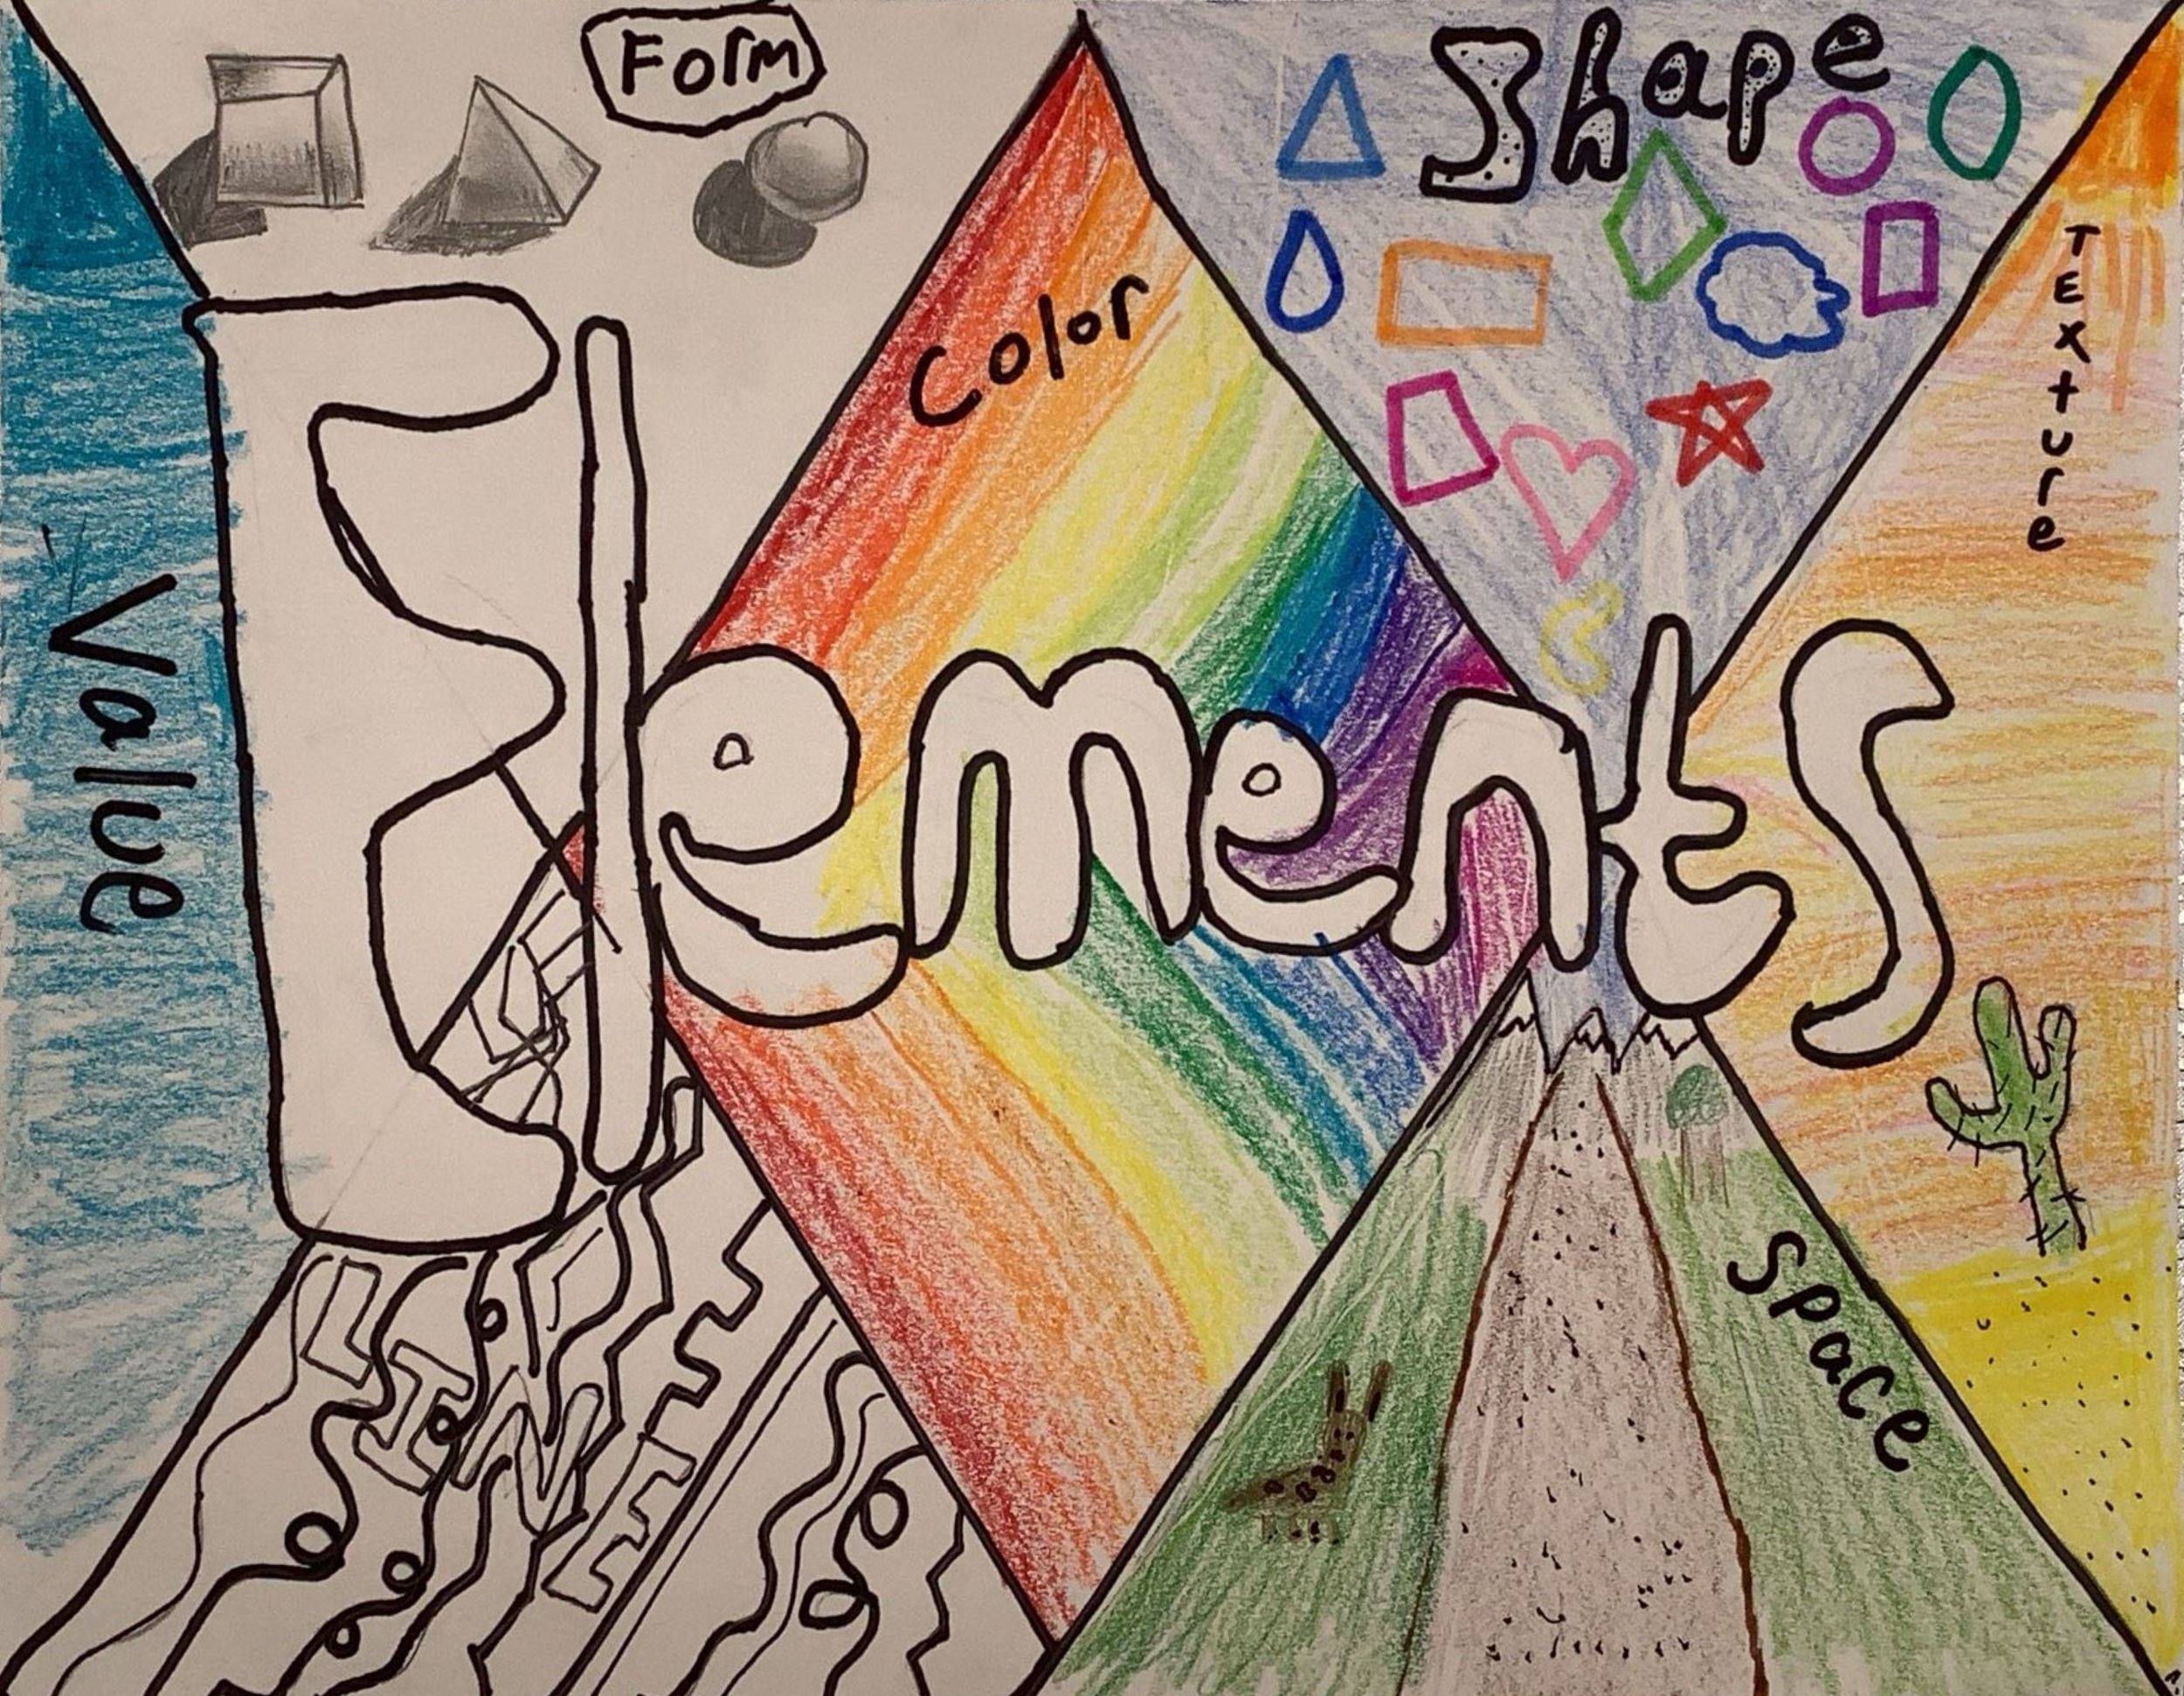 Form
Shape
Color
TExture
Value
Elements
LINE
Space